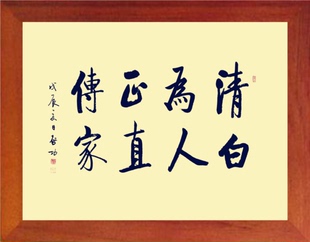 清白
為人
正直
傳家
戊辰夏日啟功